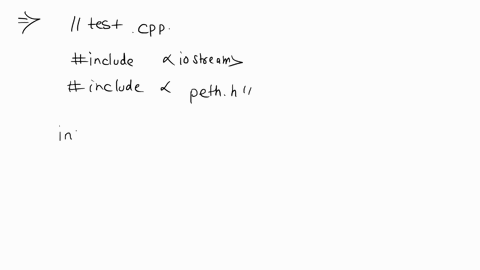 ⇒ // test .cpp.
#include <iostream>
#include < peth.h"
in